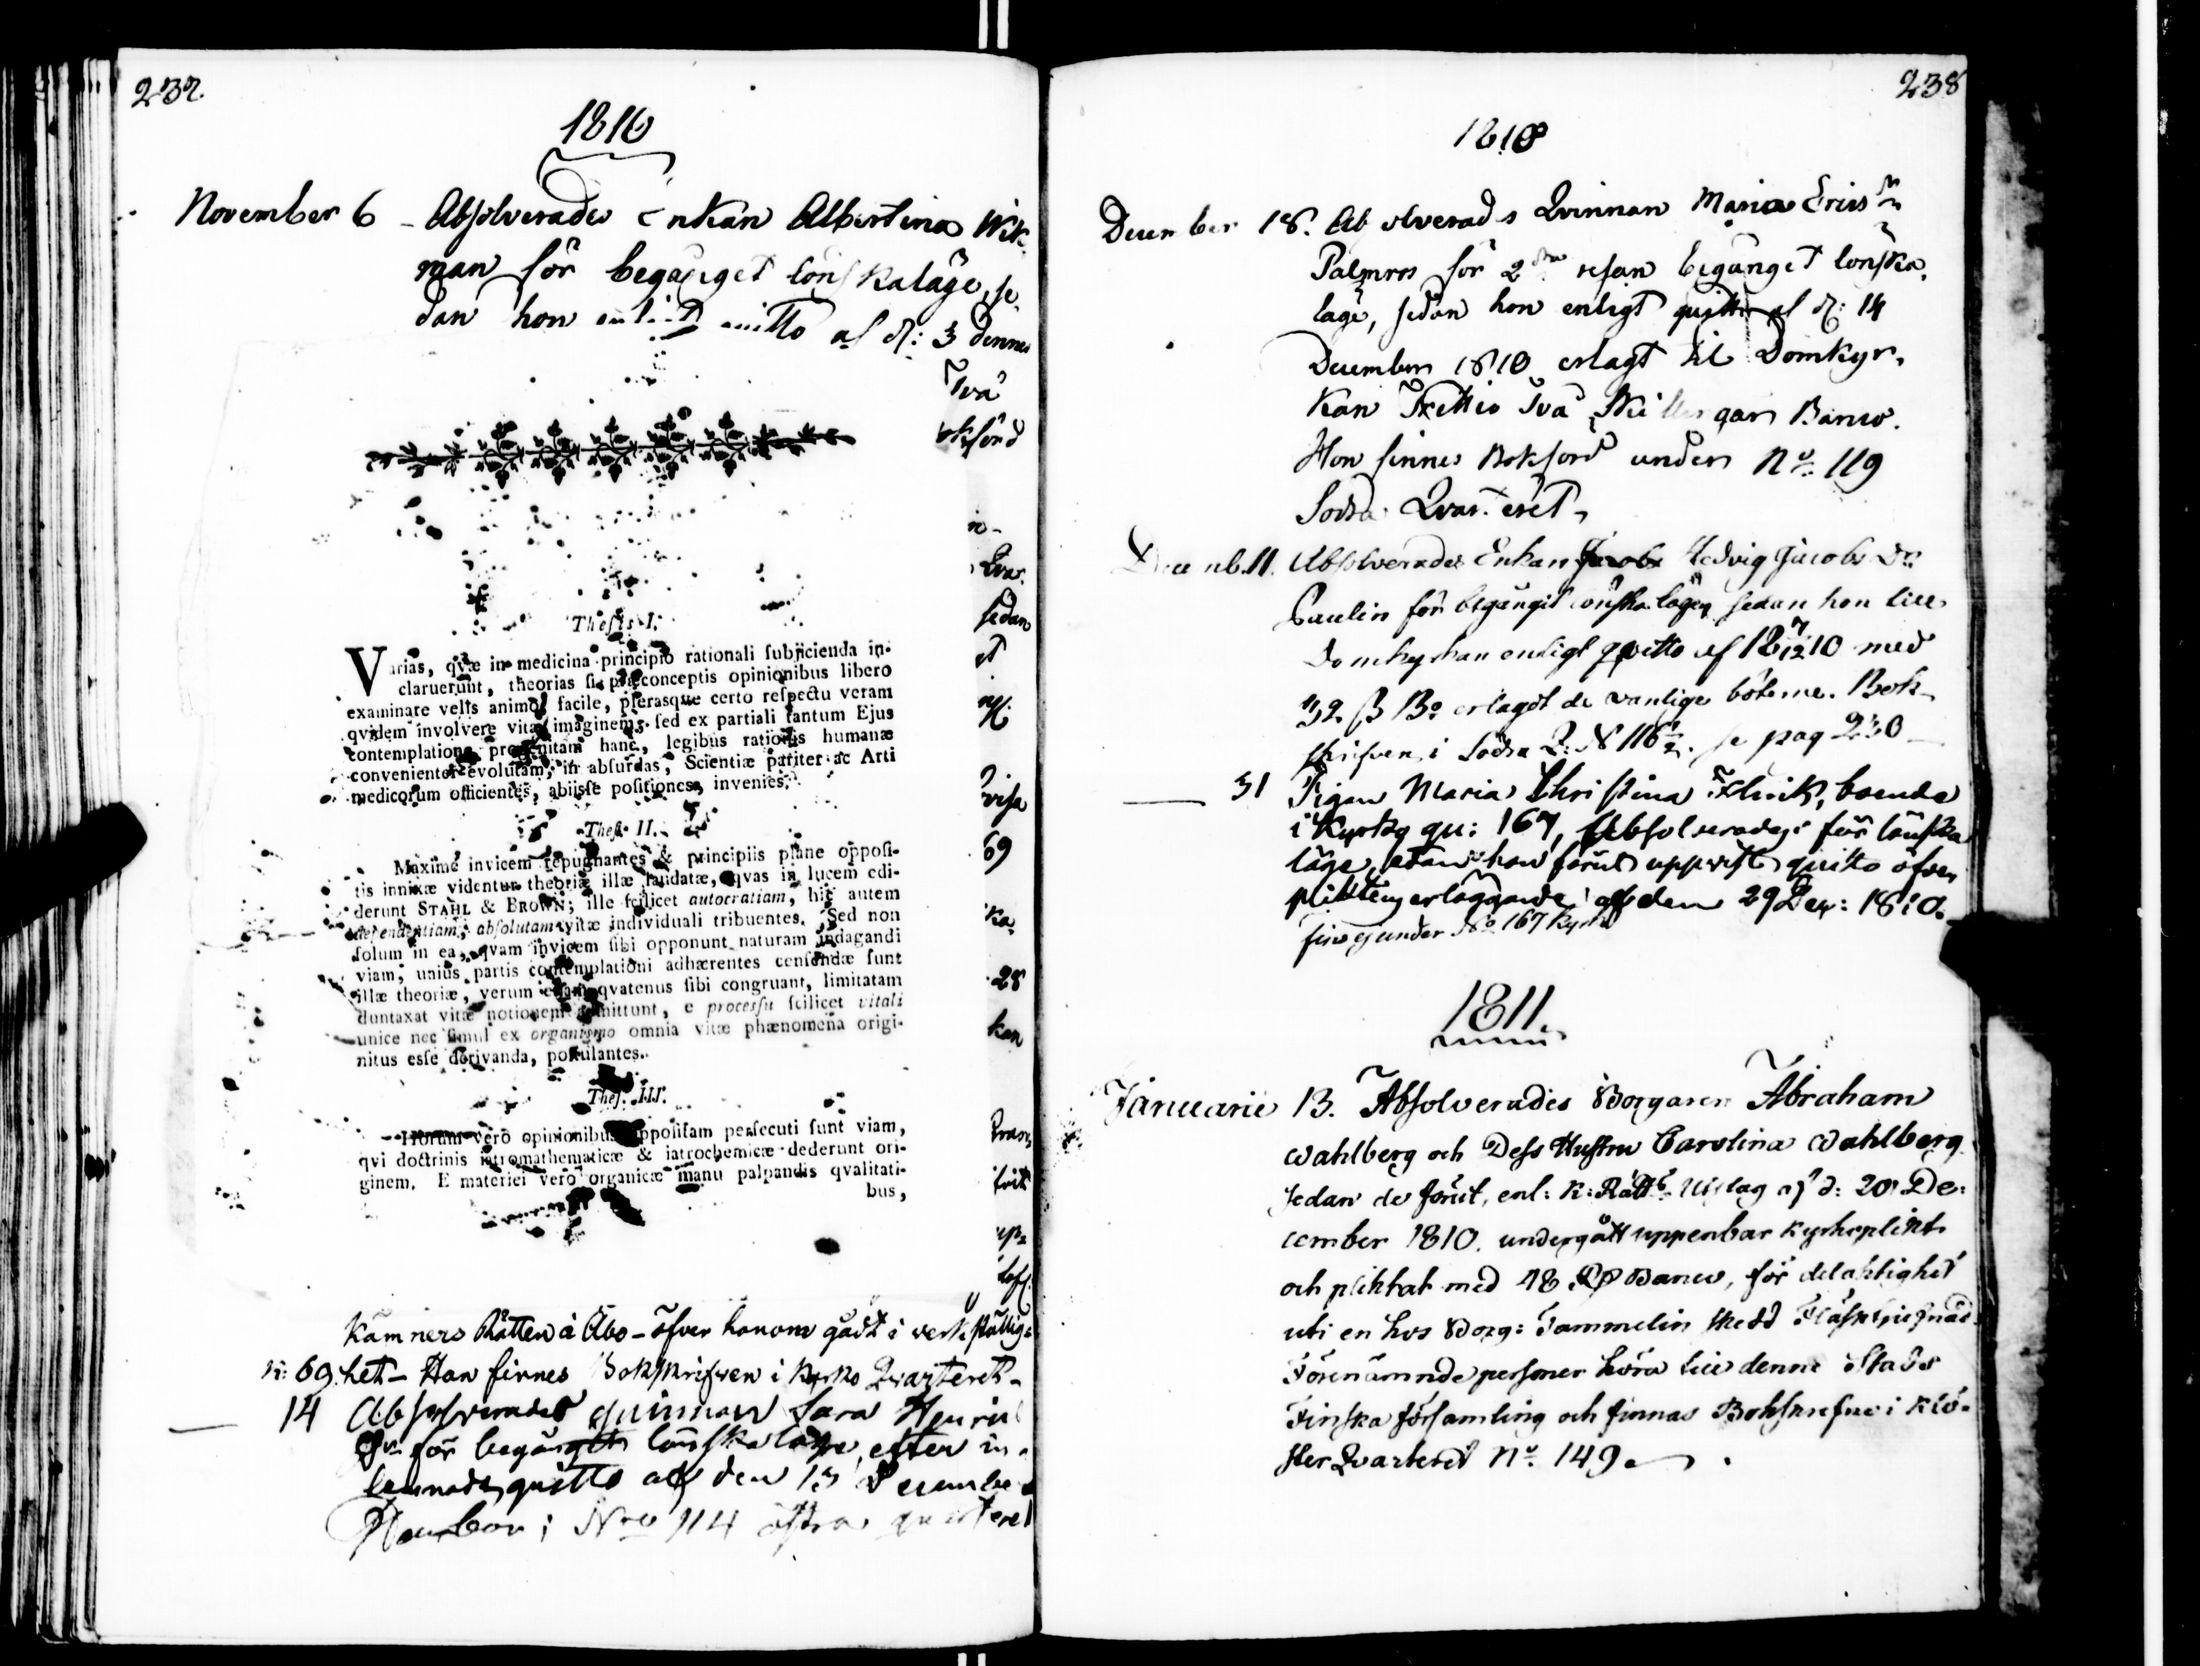 237.
1810
November 6 - Absolverades Enkan Albertina Wik-
man för begånget lönskaläge, se-
dan hon enligt quitto af d: 3 dennes
Två
okförd
n-
Qvar.
sedan
et
visa
69
ka-
28
kan
up-
Thesis I.
Varias, qvæ in medicina principio rationali subjicienda in-
claruerunt, theorias si præconceptis opinionibus libero
examinare velis animo, facile, plerasque certo respectu veram
qvidem involvere vitæ imaginem, sed ex partiali tantum Ejus
contemplatione progenitam hanc, legibus rationis humanæ
convenienter evolutam, in absurdas, Scientiæ pariter ac Arti
medicorum officientes, abiisse positiones, invenies.
Thes. II.
Maxime invicem repugnantes & principiis plane opposi-
tis innixæ videntur theoriæ illæ laudatæ, qvas in lucem edi-
derunt STAHL & BROWN; ille scilicet autocratiam, hic autem
dependentiam absolutam vitæ individuali tribuentes. Sed non
solum in ea, qvam invicem sibi opponunt naturam indagandi
viam, unius partis contemplationi adhærentes censendæ sunt
illæ theoriæ, verum etiam qvatenus sibi congruant, limitatam
duntaxat vitæ notionem admittunt, e processu scilicet vitali
unice nec simul ex organismo omnia vitæ phænomena origi-
nitus esse derivanda, postulantes.
Thes. III.
Horum vero opinionibus oppositam persecuti sunt viam,
qvi doctrinis iatromathematicæ & iatrochemicæ dederunt ori-
ginem. E materiei vero organicæ manu palpandis qvalitati-
bus,
Kämners Rätten i Åbo - öfver honom gådt i verkställig-
n: 69. het - Han finnes Bokskrifven i Kyrko Qvarteret -
14 Absolverades quinnan Sara Henrics
Dr för begånget lönskaläge, efter in-
lemnadt quitto af den 13 December
N:ro 114 östra quarteret
238
1810
December 18. Absolverades Qvinnan Maria Erics Dr
Palmros för 2dra resan begånget lönska-
läge, sedan hon enligt quitto af d: 14
December 1810 erlagt til Domkyr-
kan Trettio Två Skillingar Banco.
Hon finnes Bokförd under No 119
Södra Qvarteret,
Decemb. 11. Absolverades Enkan Jacobs Hedvig Jacobs Dr
Paulin för begångit lönskaläge, sedan hon till
Domkyrkan enligt qvitto af 18 7/12 10 med
32 ß Bo erlagdt de vanlige böterne. Bok-
skrifven i Södra Q. N 116 1/2. se pag 230
31 Pigan Maria Christina Flink, boende
i Kyrko qu: 167, Absolverades för lönska
läge, sedan hon förut uppvist quitto öfver
pliktens erläggande af den 29 Dec: 1810.
finnes under No 167 Kyrk
1811.
Januarii 13. Absolverades Borgaren Abraham
Wahlberg och Dess Hustru Carolina Wahlberg
sedan de förut, enl: K: Rätts Utslag af d: 20 De-
cember 1810. undergått uppenbar kyrkoplikt
och pliktat med 48 Rd Banco, för delaktighet
uti en hos Borg: Tammelin skedd Fläsktjufnad.
Förenämnde personer höra till denne Stads
Finska församling och finnas Bokskrefne i Klö-
ster Qvarteret No 149.